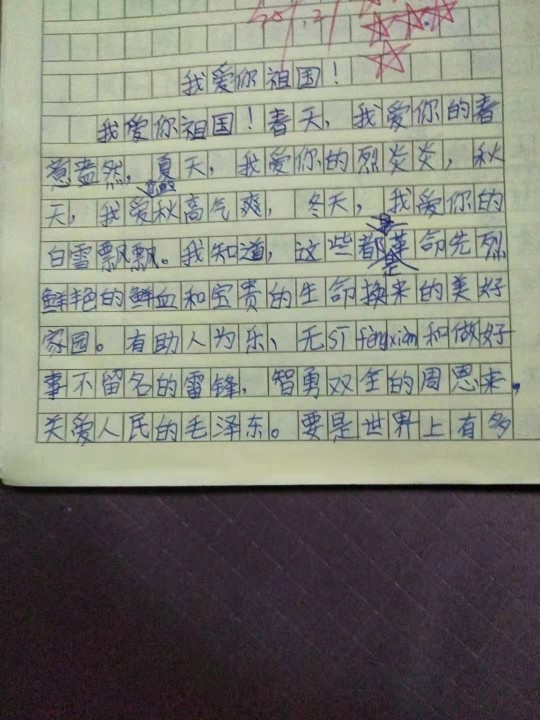 我爱你祖国！
我爱你祖国！春天，我爱你的春
意盎然，夏天，我爱你的烈炎炎，秋
天，我爱秋高气爽，冬天，我爱你的
白雪飘飘。我知道，这些都是革命先烈
鲜艳的鲜血和宝贵的生命换来的美好
家园。有助人为乐、无sī fèngxiàn和做好
事不留名的雷锋，智勇双全的周恩来，
关爱人民的毛泽东。要是世界上有多